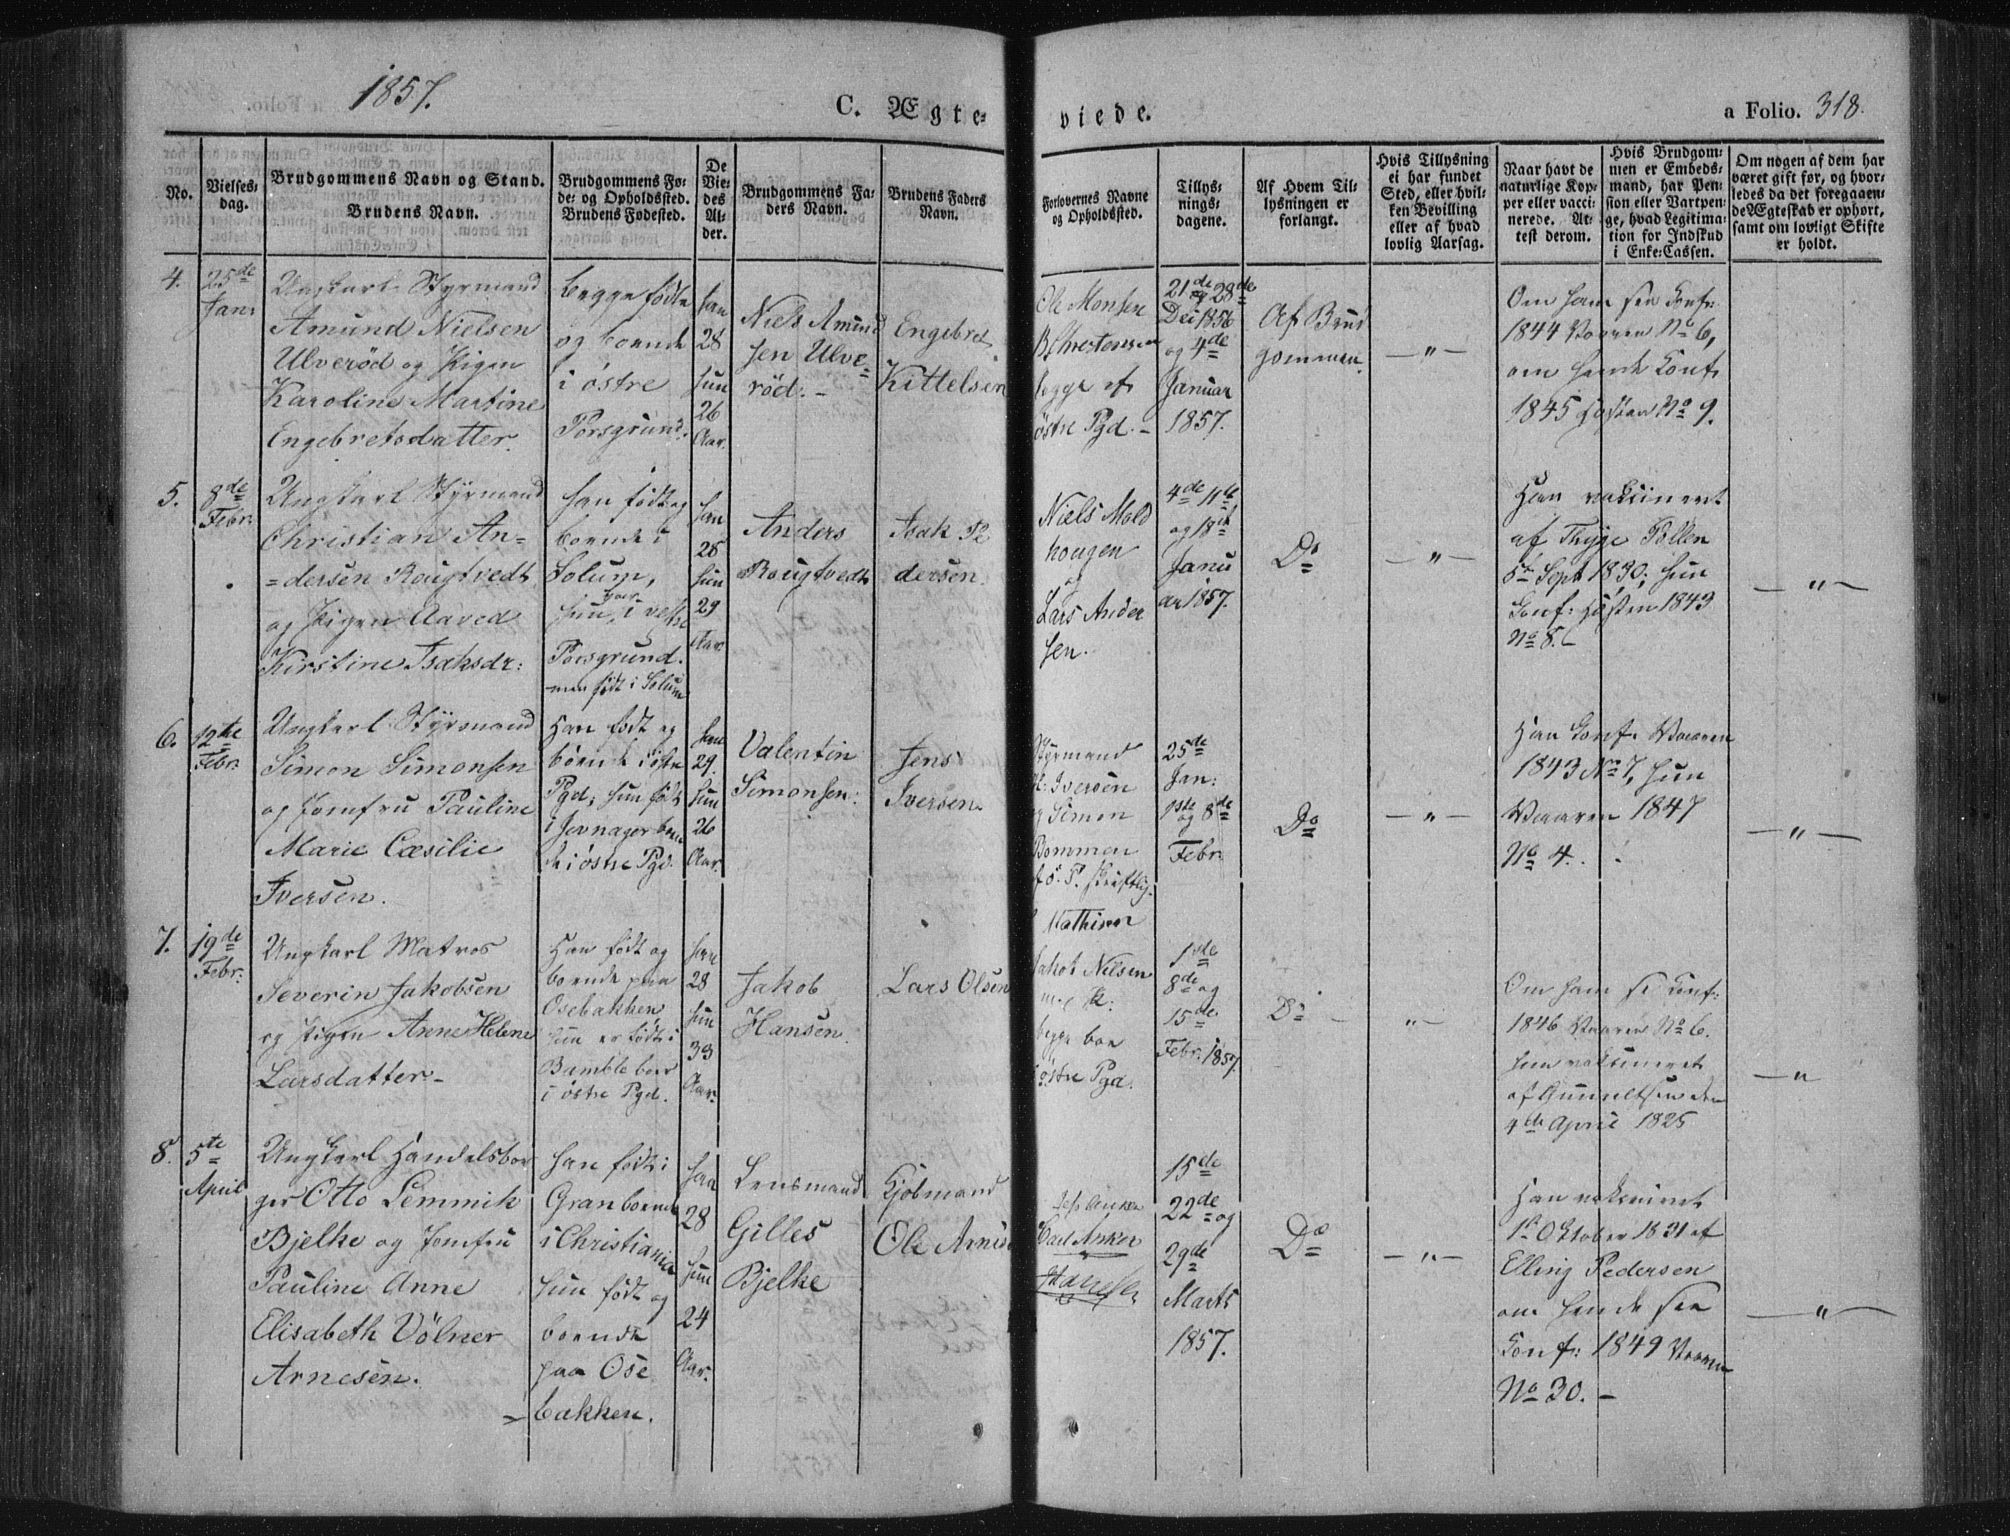 1857.
C. Ægte-
viede.
a Folio. 318.
No.
Vielses-
dag.
Brudgommens Navn og Stand.
Brudens Navn.
Brudgommens Fø-
de- og Opholdssted.
Brudens Fødested.
De
Vie-
des
Al-
der.
Brudgommens Fa-
ders Navn.
Brudens Faders
Navn.
Forlovernes Navne
og Opholdssted.
Tillys-
nings-
dagene.
Af Hvem Til-
lysningen er
forlangt.
Hvis Tillysning
ei har fundet
Sted, eller hvil-
ken Bevilling
eller af hvad
lovlig Aarsag.
Naar havt de
naturlige Kop-
per eller vacci-
nerede. At-
test derom.
Hvis Brudgom-
men er Embeds-
mand, har Pen-
sion eller Vartpen-
ge, hvad Legitima-
tion for Indskud
i Enke-Cassen.
Om nogen af dem har
været gift før, og hvor-
ledes da det foregaaen-
de Ægteskab er ophørt,
samt om lovligt Skifte
er holdt.
4.
25de
Janr
Ungkarl Styrmand
Amund Nielsen
Ulverød og Pigen
Karoline Martine
Engebretsdatter.
begge fødte
og boende
i østre
Porsgrund.
han
28
hun
26
Aar.
Niels Amund
sen Ulve=
rød. -
Engebret
Kittelsen
Ole Monsen
Christensen
begge af
østre Pgd. -
21de og 28de
Dec 1856
og 4de
Januar
1857.
Af Brud
gommen.
- " -
Om ham see Conf:
1844 Vaaren No 6,
om hende Conf.
1845 Høsten No 9.
5.
8de
Febr.
Ungkarl Styrmand
Christian An=
=dersen Rougtvedt
og Pigen Aaved
Kirstine Isaksdr:
han født og
boende i
Solum,
hun boer i vestre
Porsgrund.
men født i Solum
han
28
hun
29
Aar.
Anders
Rougtvedt
Isak Pe
dersen.
Niels Mold
hougen
og
Lars Ander
sen.
4de 11te
og 18de
Janu
ar 1857.
Do
- " -
Han vaksineret
af Thyge Pollen
5te Sept 1830; hun
Conf: Høsten 1843
No 8. -
- " -
6.
12te
Febr.
Ungkarl Styrmand
Simon Simonsen
og Jomfru Pauline
Marie Cæsilie
Iversen.
Han født og
boende i østre
Pgd; hun født
i Jevnager boen
de i østre Pgd.
han
29.
hun
26
Aar.
Valentin
Simonsen.
Jens
Iversen.
Styrmand
Iversen
og Simon
Bommen
af ø. P. skriftlig.
25de
Jan:
1ste og 8de
Febr.
Do
- " -
Han Conf. Vaaren
1843 No 7, hun
Vaaren 1847
No 4.
- " -
7.
19de
Febr.
Ungkarl Matros
Severin Jakobsen
og Pigen Anne Helene
Larsdatter -
Han født og
boende paa
Osebakken,
hun er født i
Bamble boer
i østre Pgd.
han
28
hun
33
Aar.
Jakob
Hansen.
Lars Olsen
Mathisen
Jakob Nilsen
begge boe
østre Pgd.
1ste
8de og
15de
Febr. 1857.
Do
- " -
Om ham se Conf:
1846 Vaaren No 6.
hun vaksineret
af Gunneltsen den
4de April 1825
- "
8.
5te
April
Ungkarl Handelsbor
ger Otto Lemmik
Bjelke og Jomfru
Pauline Anne
Elisabeth Völner
Arnesen.
han født i
Gran boende
i Christiania
hun født og
boende
paa Ose
bakken.
han
28
hun
24
Aar.
Lensmand
Gilles
Bjelke
Kjøbmand
Ole Arnes
Carl Anker
Hansen
15de
22de og
29de
Marts
1857.
Do
- " -
Han vaksineret
1ste Oktober 1831 af
Elling Pedersen
om hende see
Conf: 1849 Vaaren
No 30. -
- " -